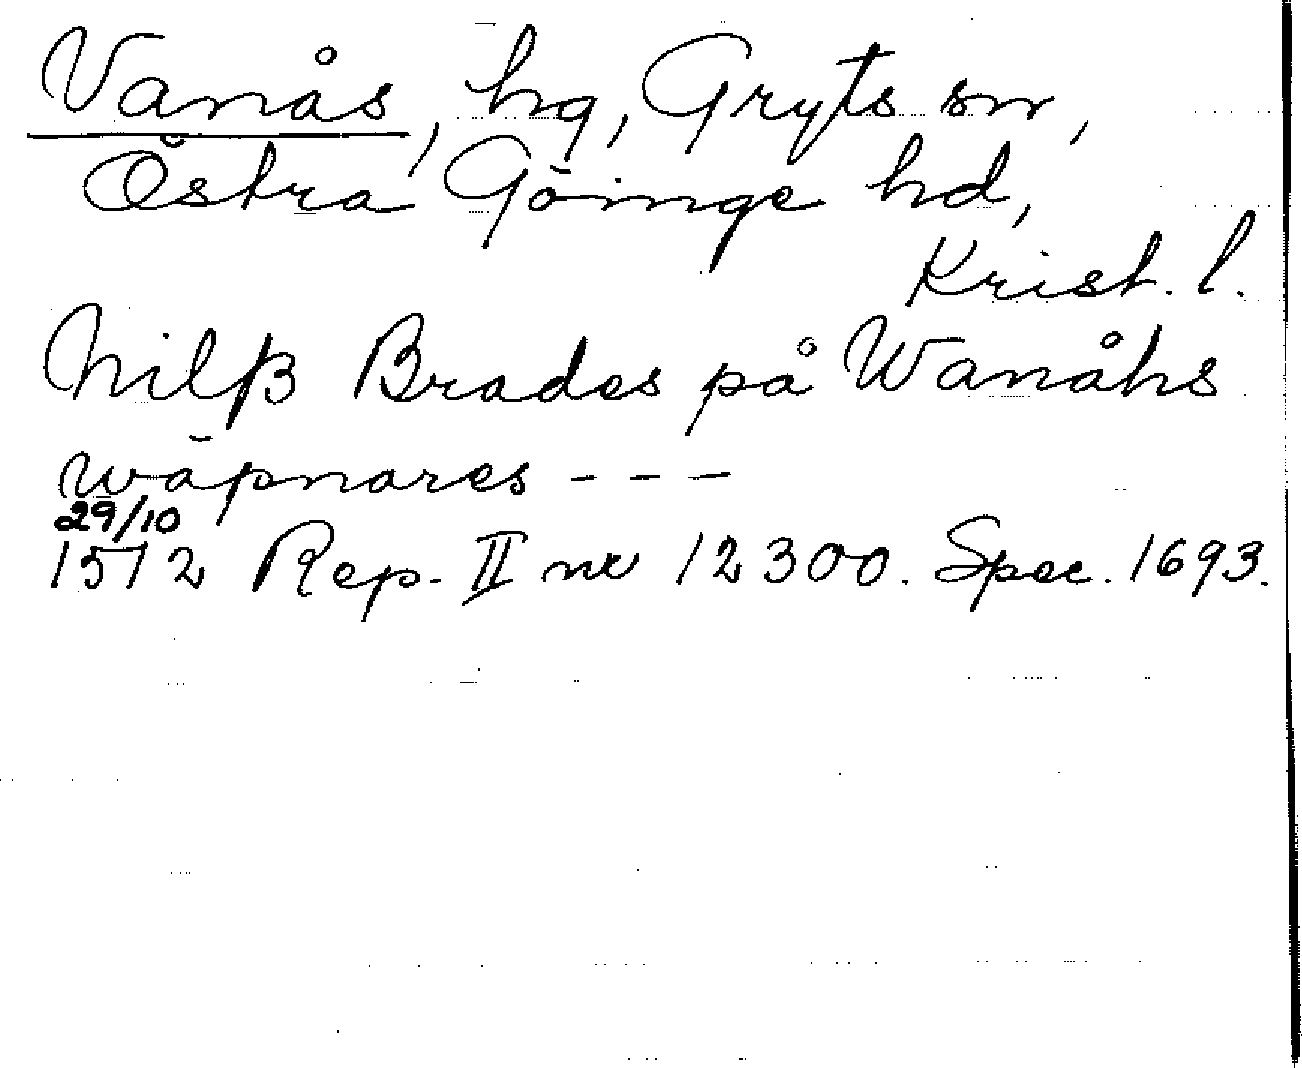 Vanås, hg, Gryts sn,
Östra Göinge hd,
Krist. l.
Nilß Brades på Wanåhs
wäpnares - - -
29/10
1572 Rep. II nr 12300. Spec. 1693.